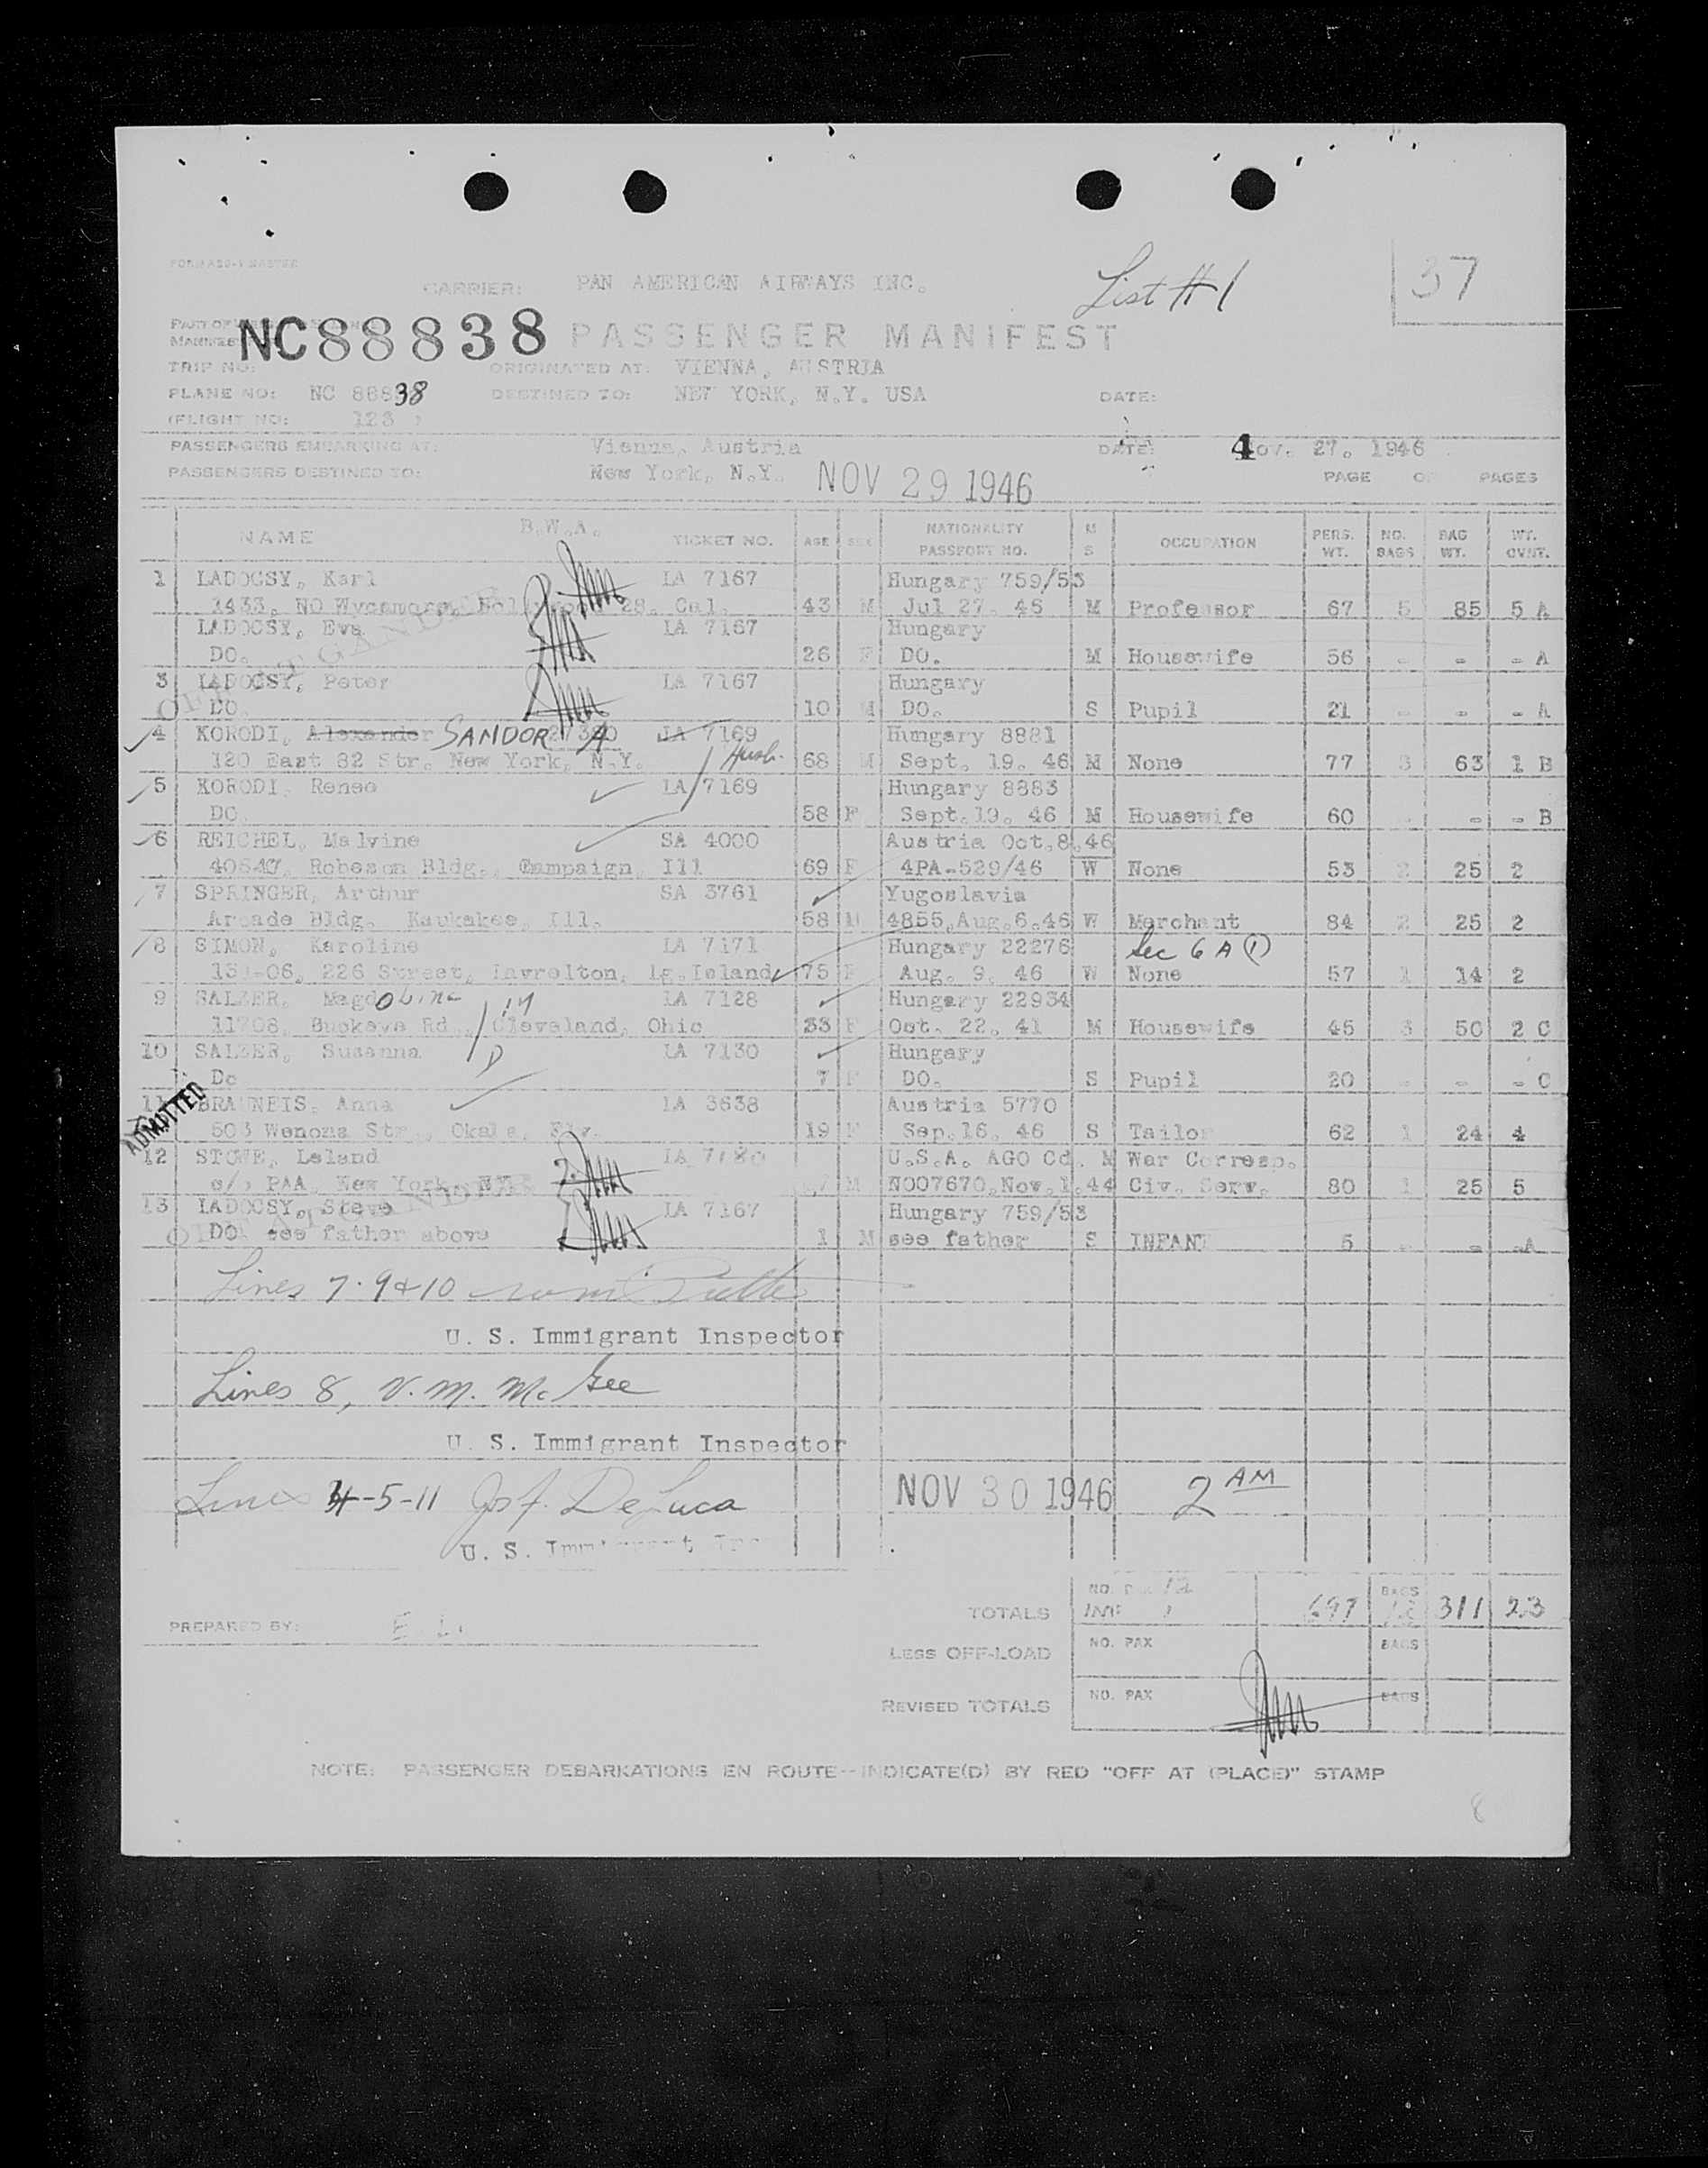 FORM ACC-1 MASTER
CARRIER: PAN AMERICAN AIRWAYS INC.
List #1
37
NC88838
PASSENGER MANIFEST
TRIP NO: ORIGINATED AT: VIENNA, AUSTRIA
PLANE NO: NC 88838 DESTINED TO: NEW YORK, N.Y. USA DATE:
(FLIGHT NO: 123 )
PASSENGERS EMBARKING AT: Vienna, Austria DATE: 4 ov. 27. 1946
PASSENGERS DESTINED TO: New York, N.Y. NOV 29 1946 PAGE OF PAGES
NAME B.W.A. TICKET NO. AGE SEX NATIONALITY PASSPORT NO. M S OCCUPATION PERS. WT. NO. BAGS BAG WT. WT. CVNT.
1 LADOCSY, Karl LA 7167 Hungary 759/53
1433, NO Wycamore, Hollywood 28. Cal. 43 M Jul 27. 46 M Professor 67 5 85 5 A
LADOCSY, Eva LA 7167 Hungary
DO. 26 F DO. M Housewife 56 - - - A
3 LADOCSY, Peter LA 7167 Hungary
DO 10 M DO. S Pupil 21 - - - A
4 KORODI, Alexander SANDOR A LA 7169 Hungary 8881
120 East 82 Str. New York, N.Y. Husb. 68 M Sept. 19. 46 M None 77 3 63 1 B
5 KORODI, Renee LA 7169 Hungary 8883
DO 58 F Sept.19. 46 M Housewife 60 - - - B
6 REICHEL, Malvine SA 4000 Austria Oct.8.46
Robeson Bldg., Campaign Ill 69 F 4PA-529/46 W None 53 2 25 2
7 SPRINGER, Arthur SA 3761 Yugoslavia
Arcade Bldg. Kaukakee, Ill. 58 M 4855,Aug.6.46 W Merchant 84 2 25 2
8 SIMON, Karoline LA 7171 Hungary 22276 Sec 6 A (1)
226 Street, Lavrelton, Lg.Island 75 F Aug. 9. 46 W None 57 1 14 2
9 SALZER, Magdolina LA 7128 Hungary 22934
11708, Buckeye Rd., Cleveland, Ohio 33 F Oct. 22. 41 M Housewife 45 3 50 2 C
10 SALZER, Susanna LA 7130 Hungary
Do 7 F DO. S Pupil 20 - - - C
ADMITTED
11 BRAUNEIS, Anna LA 3638 Austria 5770
503 Wenona Str., Okala, Flr. 19 F Sep.16. 46 S Tailor 62 1 24 4
12 STOWE, Leland LA 7180 U.S.A. AGO Cd. M War Corresp.
c/o PAA, New York, NY M N007670,Nov.1.44 Civ. Serv. 80 1 25 5
13 LADOCSY, Steve LA 7167 Hungary 759/53
DO see father above 1 M see father S INFANT 5 - - -A
OFF AT GANDER
OFF AT GANDER
Lines 7-9&10
U. S. Immigrant Inspector
Lines 8, V. M. McGee
U. S. Immigrant Inspector
Lines 4-5-11 Jos F. DeLuca NOV 30 1946 2 AM
U. S. Immigrant Ins
TOTALS NO. PAX 12 INF 1 697 BAGS 18 311 23
PREPARED BY: E. L.
LESS OFF-LOAD NO. PAX BAGS
REVISED TOTALS NO. PAX BAGS
NOTE: PASSENGER DEBARKATIONS EN ROUTE--INDICATE(D) BY RED "OFF AT (PLACE)" STAMP
8